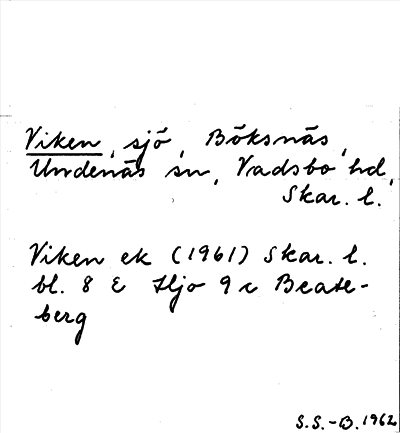 Viken, sjö, Böksnäs,
Undenäs sn, Vadsbo hd,
Skar. l.
Viken ek (1961) Skar. l.
bl. 8 E Hjo 9 c Beate-
berg
S.S.-B. 1962